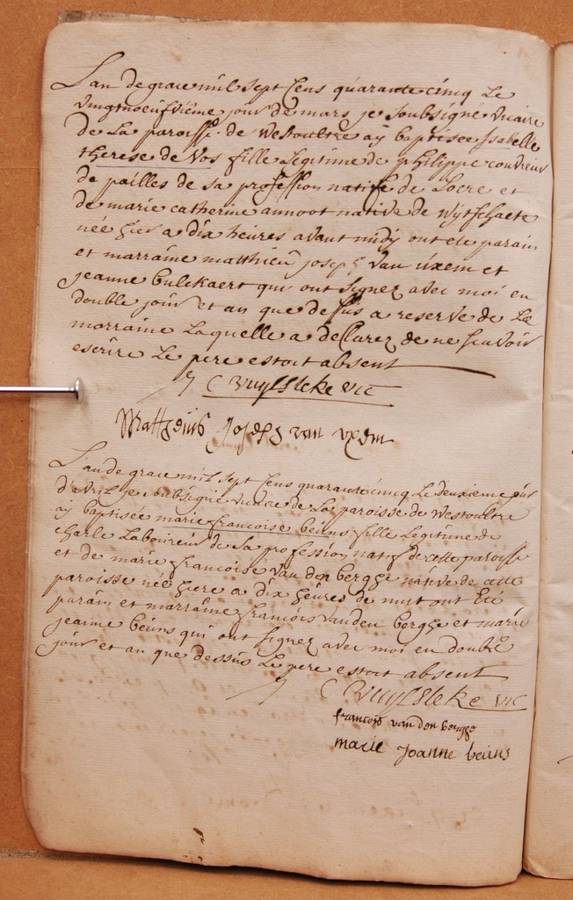 Lan de grace mil sept Cens quarante cinq Le
vingtneufvième jour de mars je soubsigné vicaire
de La paroisse de Westoultre aÿ baptisée Isabelle
therese de Vos fille Legitime de philippe couvreur
de pailles de sa profession natif de Locre et
de marie catherine annoot native de Wytschaete
née hier a dix heures avant midÿ ont ete parain
et marraine matthieu joseph van uxem et
jeanne Bulckaert qui ont signez avec moi en
double jour et an que dessus a reserve de La
morraine Laquelle a declarez de ne scavoir
escrire Le pere estoit absent
C Vuylsteke vic
Mattheuis Joseph van uxem
Lan de grace mil sept Cens quarante cinq Le deuxieme jour
d'avril je soubsigné vicaire de La paroisse de Westoultre
aÿ baptisée marie francoise beuns fille Legitime de
charle Laboureur de sa profession natif de cette paroisse
et de marie francoise van den berghe native de cette
paroisse née hiere a dix heures de nuit ont Eté
parain et marraine francois vanden berghe et marie
jeanne beuns qui ont signez avec moi en double
jour et an que dessus Le pere estoit absent
C Vuylsteke vic
francois van den berghe
marie joanne beuns